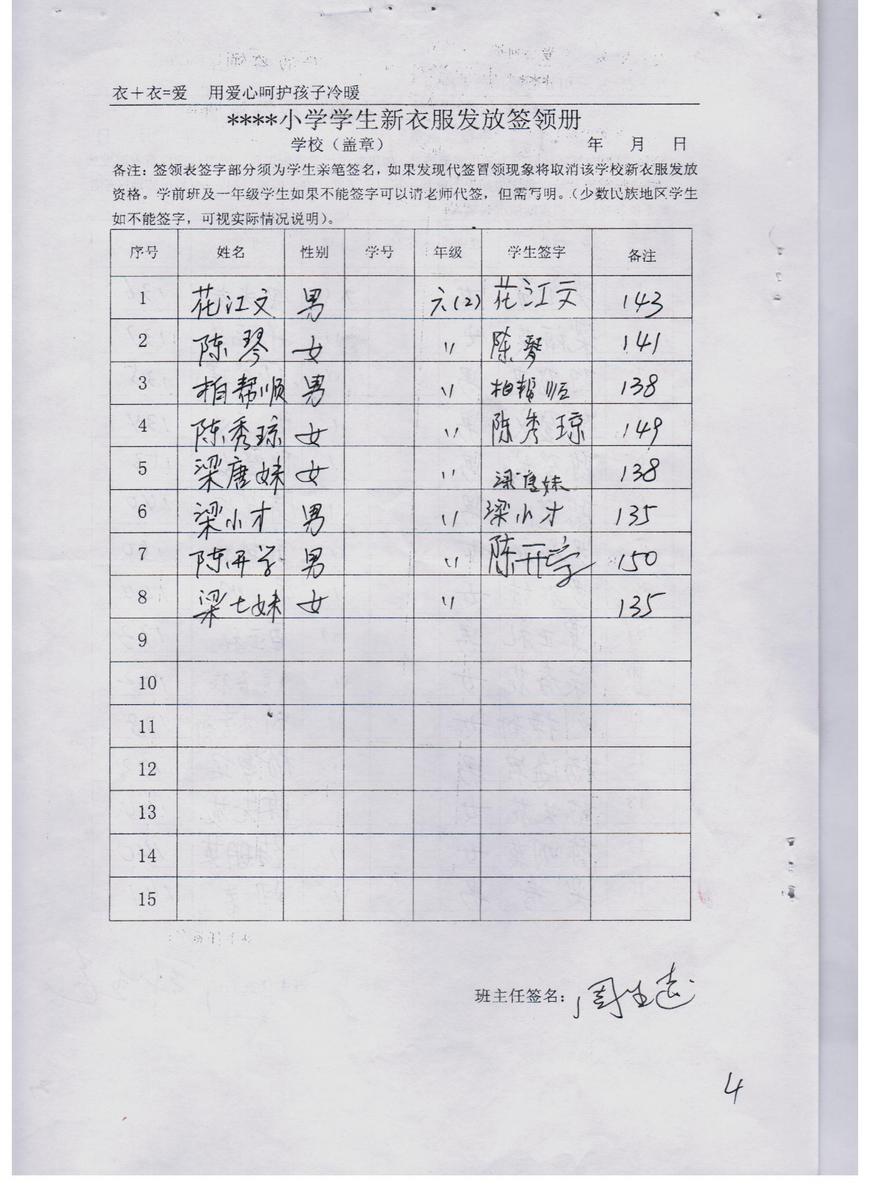 衣＋衣=爱 用爱心呵护孩子冷暖
****小学学生新衣服发放签领册
学校（盖章） 年 月 日
备注：签领表签字部分须为学生亲笔签名，如果发现代签冒领现象将取消该学校新衣服发放
资格。学前班及一年级学生如果不能签字可以请老师代签，但需写明。（少数民族地区学生
如不能签字，可视实际情况说明）。
序号 姓名 性别 学号 年级 学生签字 备注
1 花江文 男 六(2) 花江文 143
2 陈琴 女 〃 陈琴 141
3 柏帮顺 男 〃 柏帮顺 138
4 陈秀琼 女 〃 陈秀琼 149
5 梁唐妹 女 〃 梁唐妹 138
6 梁小才 男 〃 梁小才 135
7 陈开学 男 〃 陈开学 150
8 梁七妹 女 〃 135
9
10
11
12
13
14
15
班主任签名：周生
4